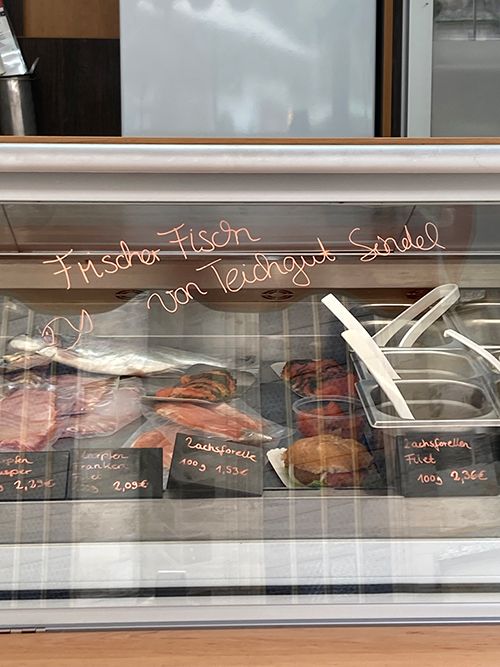 Frischer Fisch
von Teichgut Sündel
2,29€
Karpfen
Franken
100g 2,09€
Lachsforelle
100g 1,53€
Lachsforellen
Filet
100g 2,36€